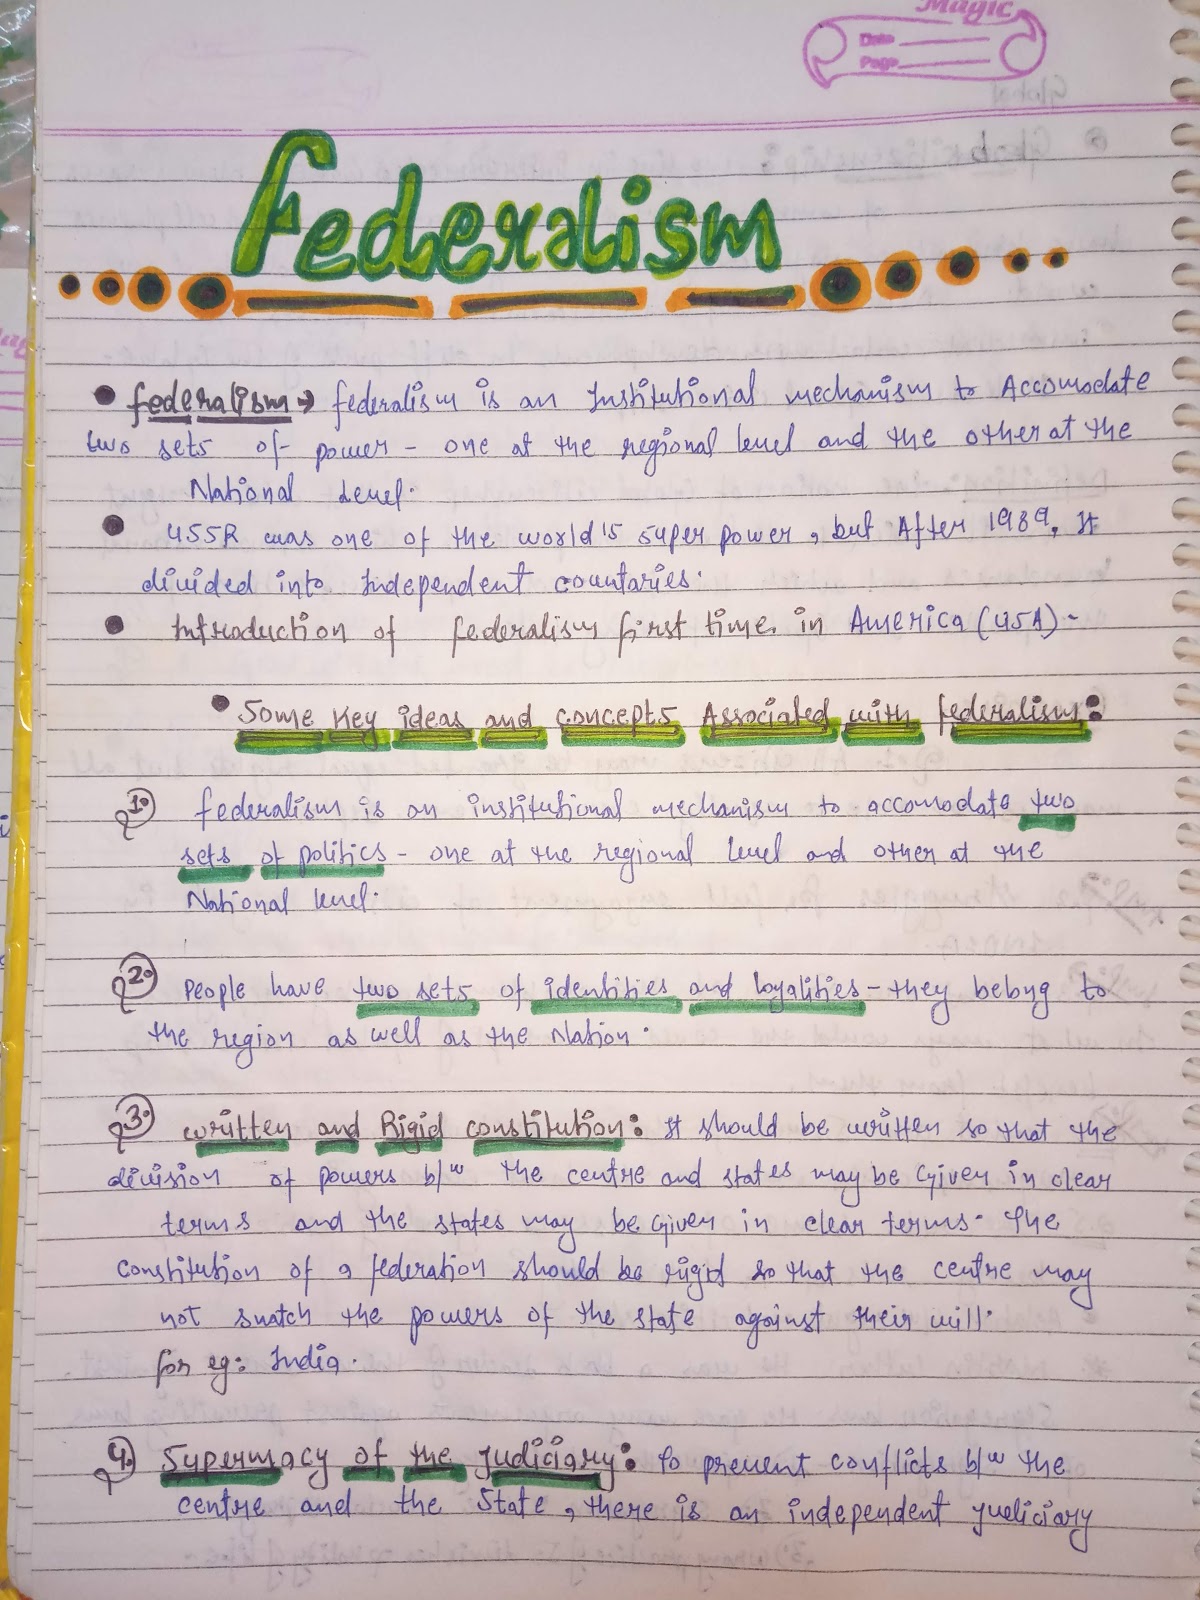 Magic
Date
Page
Federalism
• federalism → federalism is an Institutional mechanism to Accomodate
two sets of power - one at the regional level and the other at the
National Level.
• USSR was one of the world's super power, but After 1989, It
divided into Independent countaries.
• Introduction of federalism first time in America (USA) -
• Some Key ideas and concepts Associated with federalism:
1. federalism is an institutional mechanism to accomodate two
sets of politics - one at the regional level and other at the
National level.
2. People have two sets of identities and loyalities - they belong to
the region as well as the Nation.
3. written and Rigid constitution: It should be written so that the
division of powers b/w the centre and states may be Given in clear
terms and the states may be Given in clear terms. The
constitution of a federation should be rigid so that the centre may
not snatch the powers of the state against their will.
for eg: India.
4. Supermacy of the judiciary: to prevent conflicts b/w the
centre and the State, there is an independent judiciary